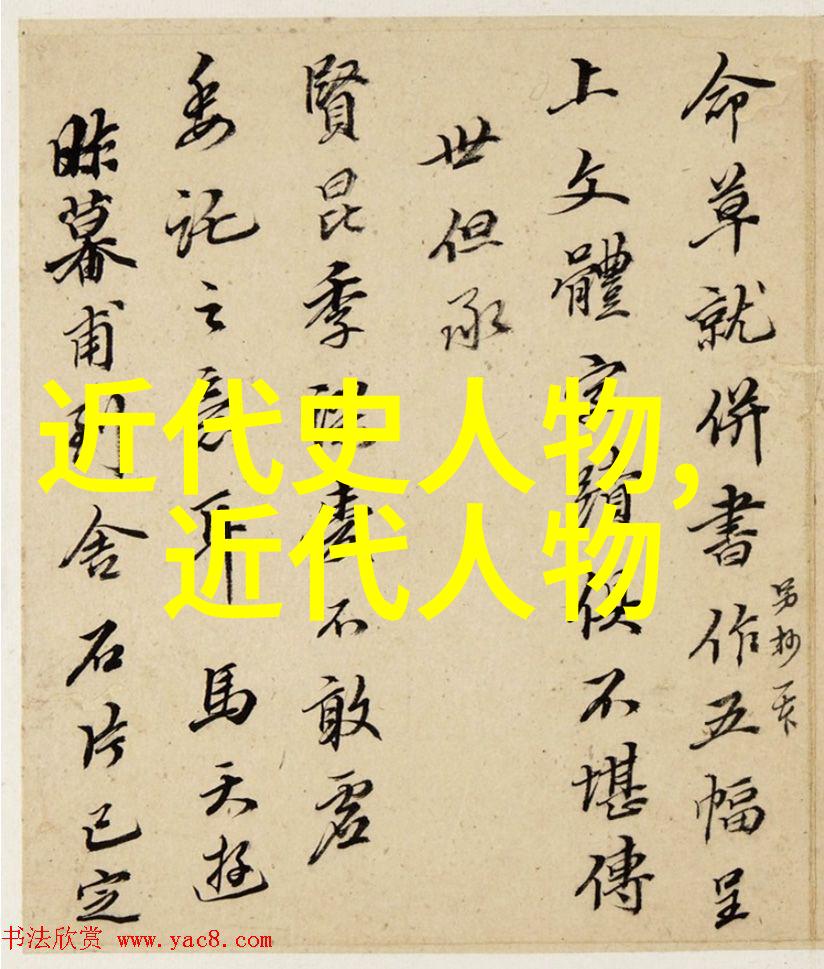 命草就併書作五幅呈
另抄一
上文體字蹟俱不堪傳
世但承
賢昆季不敢虛
委託之意耳馬天游
昨暮甫到舍石片已定
近代史人物,
近代人物
书法欣赏 www.yac8.com